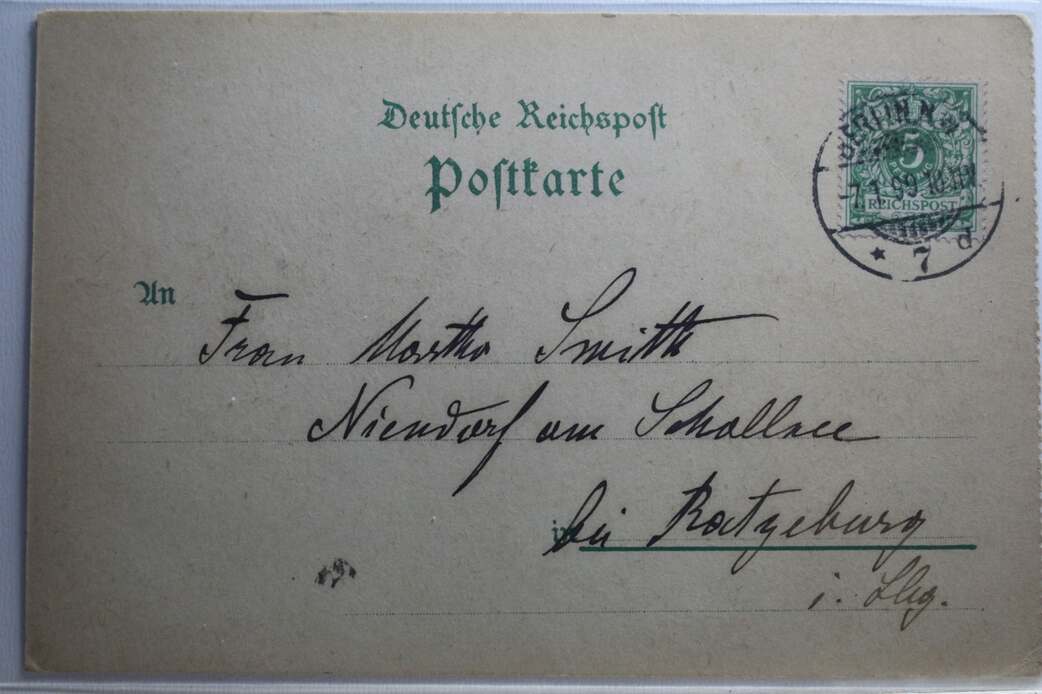 Deutsche Reichspost
Postkarte
BERLIN N.W.
7.1.99.10
5
REICHSPOST
* 7 d
An
Frau Martha Smith
Niendorf am Schallsee
in bei Ratzeburg
i. Lbg.